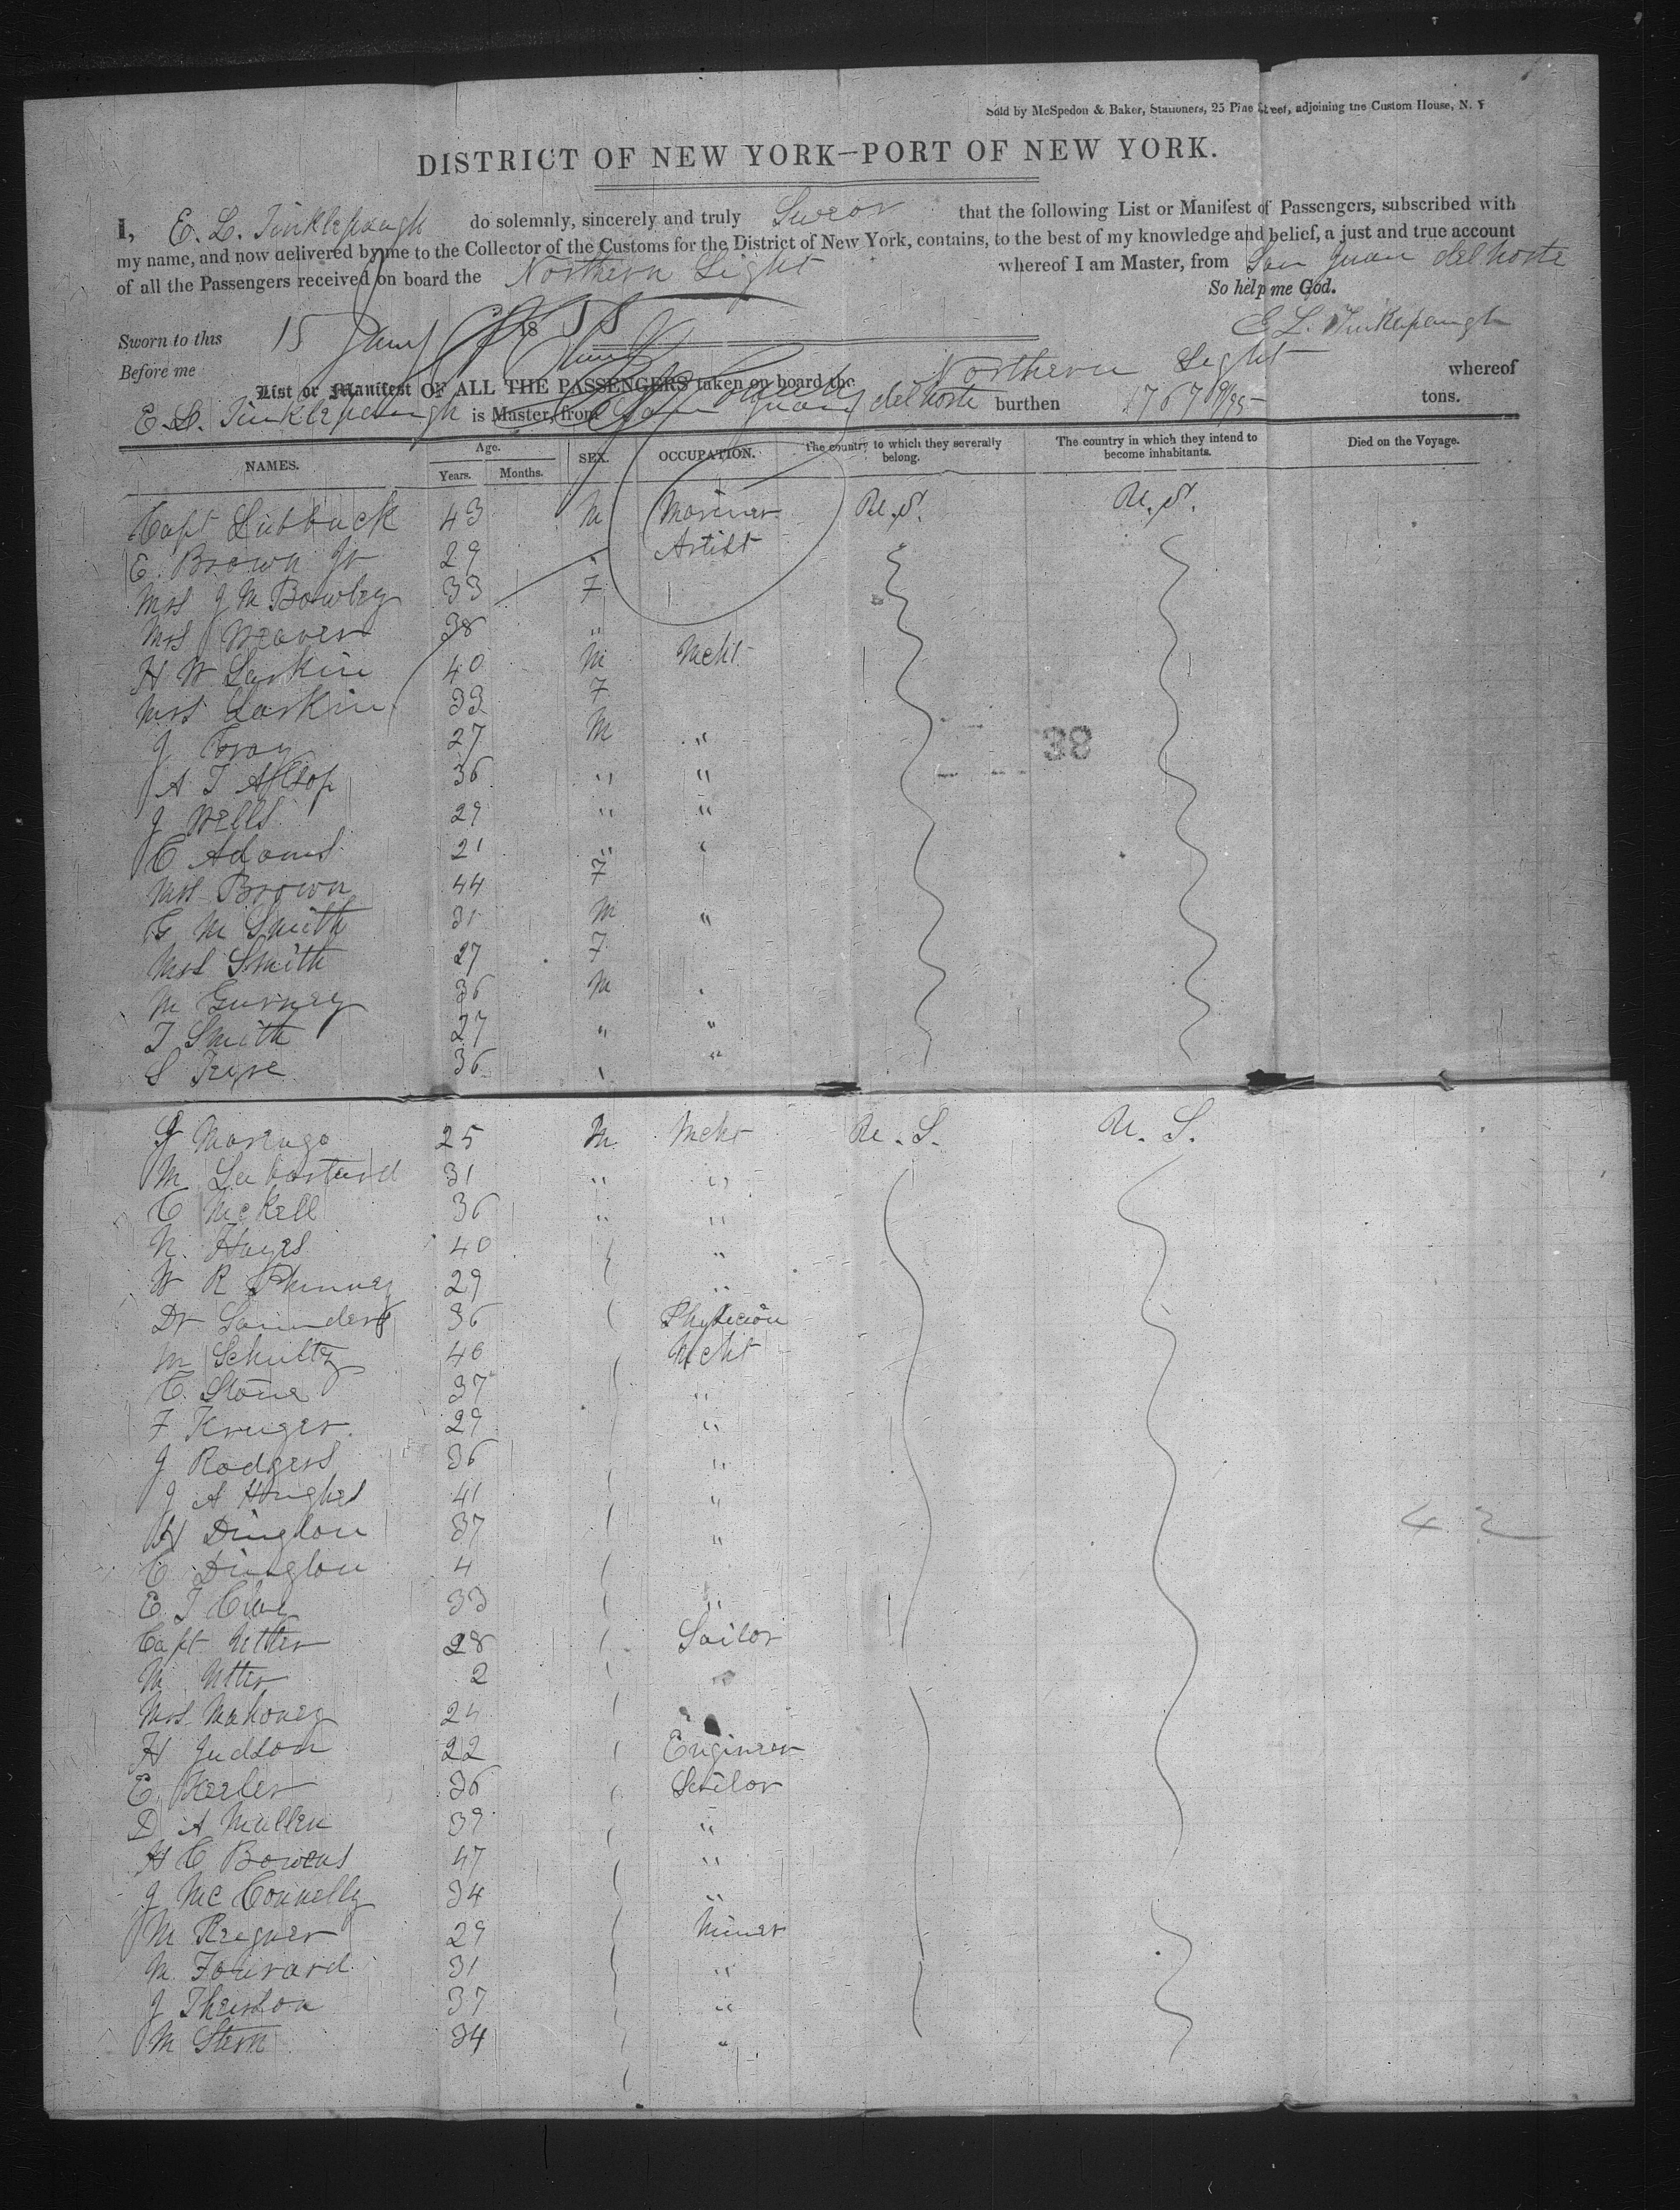 Sold by McSpedon & Baker, Stationers, 25 Pine Street, adjoining the Custom House, N. Y
DISTRICT OF NEW YORK—PORT OF NEW YORK.
I, E. L. Tinklepaugh do solemnly, sincerely and truly Swear that the following List or Manifest of Passengers, subscribed with
my name, and now delivered by me to the Collector of the Customs for the District of New York, contains, to the best of my knowledge and belief, a just and true account
of all the Passengers received on board the Northern Light whereof I am Master, from San Juan del Norte
So help me God.
Sworn to this 15 Jany 1855
E L. Tinklepaugh
Before me
List or Manifest OF ALL THE PASSENGERS taken on board the Northern Light whereof
E. L. Tinklepaugh is Master, from San Juan del Norte burthen 1767 91/95 tons.
NAMES. Age. Years. Months. SEX. OCCUPATION. The country to which they severally belong. The country in which they intend to become inhabitants. Died on the Voyage.
Capt Lubbuck 43 M Mariner U.S. U.S.
E. Brown Jr 29 Artist
Mrs J M Bowley 33 F
Mrs Weaver 38 "
H W Larkin 40 M Mcht
Mrs Larkin 33 F
J Gray 27 M "
A T Allsop 36 " "
J Wells 29 " "
C Adams 21 " "
Mrs Brown 44 F
G M Smith 31 M "
Mrs Smith 27 F
M Gurney 36 M "
T Smith 27 " "
S 36 "
38
J Marengo 25 M Mcht U. S. U. S.
M 31 " "
C McKell 36 " "
N. Hayes 40 "
W R Phinney 29 "
Dr Saunders 36 Physician
M Schultz 40 Mcht
C. Stone 37 "
F Kruger 29 "
J Rodgers 36 "
J A Hughes 41 "
H Dinglon 37 "
C Dinglon 4
E. T Clay 33 "
Capt Utter 28 Sailor
M Utter 2 "
Mrs Mahoney 24
H Judson 22 Engineer
E. Keeler 36 Sailor
D A Mullen 39 "
H C Bowens 47 "
J McConnelly 34 "
M Regner 29 Miner
M. Forward 31 "
J Thurston 37 "
M Stern 34 "
42